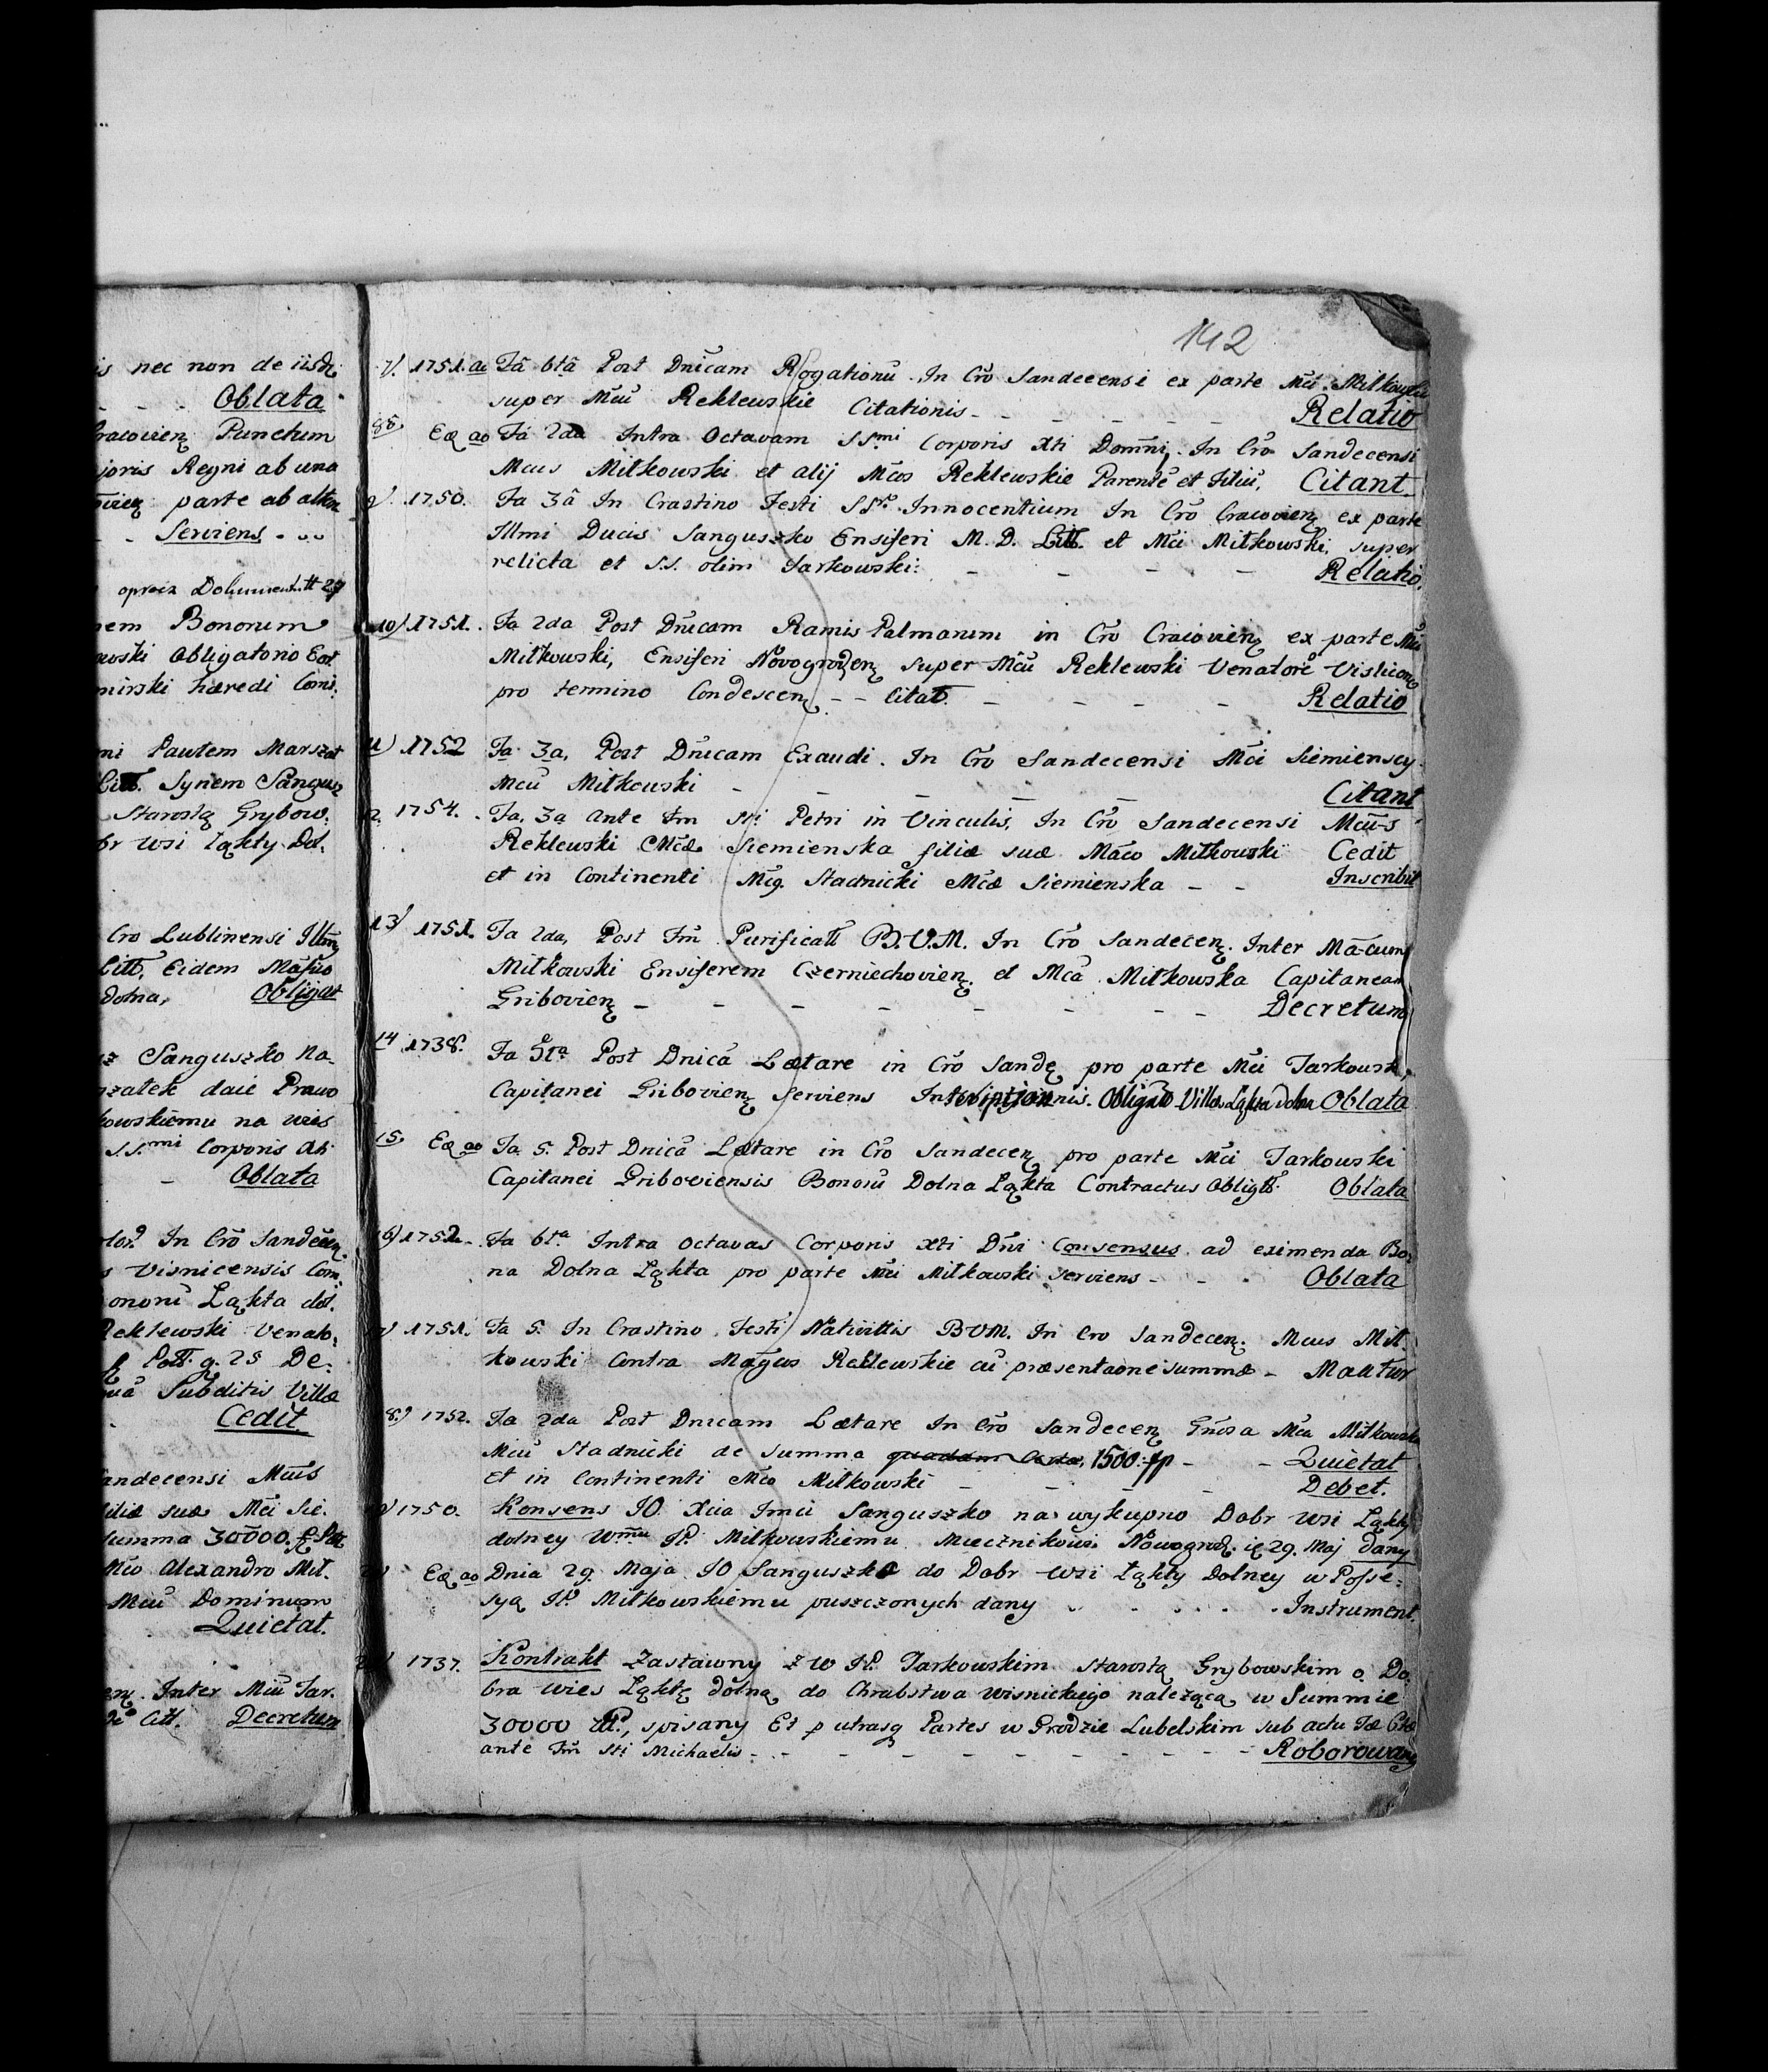 is nec non de iisdę
Oblata
Cracovienę Punctum
joris Regni ab una
parte ab altera
Serviens
opreiz Dokument. tt 27
nem Bonorum
owski Obligatorio Eod.
minski hæredi Comi.
mi Pawłem Marszał
Litt. Synem Sangusz
Starostą Grybow.
br wsi Łąkty Dol.
Cro Lublinensi Illm̃
Litt. Eidem Mãfico
dolna, Obligat
Sanguszko Na-
szałek daie Prawo
kowskiemu na wieś
S.S.mi Corporis Xti
Oblata
In Crõ Sandecenę
s Visnicensis Com.
onorũ Łąkta dol.
Reklewski Venato.
Post. g. 25 De.
Subditis Villæ
Cedit.
andecensi Mcũs
filiæ suæ Mci Sie.
Summa 30000.
Mco Alexandro Mił.
Mcũ Dominum
Quietat.
Inter Mcũ Tar.
Citt. Decretum
142
7). 1751. ao Fã 6tã Post Dnĩcam Rogationũ. In Crõ Sandecensi ex parte Mci. Miłkowski
super Mcũ Reklewskie Citationis - - - - Relatio
88. Eõ ao Fã 2da Intra Octavam SSmi Corporis Xti Domni. In Crõ Sandecensi
Mcus Miłkowski et alij Mcos Reklewskie Parentẽ et Filiũ, Citant.
9). 1750. Fa 3ã In Crastino Festi SS. Innocentium In Crõ Cracovienę ex parte
Illmi Ducis Sanguszko Ensiferi M. D. Litt. et Mci Miłkowski, super
relicta et S.S. olim Tarkowski: - - - - Relatio
10) 1751. Fa 2da Post Dnĩcam Ramis Palmarum in Crõ Cracovienę ex parte Mci
Miłkowski, Ensiferi Novogrodzenę super Mcũ Reklewski Venatorẽ Vislicenę
pro termino Condescenę - - Citatt. - - - - Relatio
11) 1752 Fa 3a, Post Dnĩcam Exaudi. In Crõ Sandecensi Mci Siemienscy
Mcũ Miłkowski - - - - - Citant
12. 1754. Fa. 3a ante Fm Sti Petri in Vinculis, In Crõ Sandecensi Mcũs
Reklewski Mcæ Siemienska filiæ suæ Mãco Miłkowski Cedit
et in Continenti Mcg. Stadnicki Mcæ Siemienska - - Inscribit
13) 1751. Fa 2da, Post Fm̃ Purificatt B.V.M. In Crõ Sandecenę. Inter Mãcum
Miłkowski Ensiferem Czerniechovienę. et Mcã Miłkowska Capitaneam
Gribovienę - - - - - - - Decretum
14 1738. Fa 5ta Post Dnicã Lætare in Crõ Sandę pro parte Mci Tarkowski,
Capitanei Gribovienę Serviens Inscriptionis. Obligato Villæ Łąkta Dolna Oblata
15. Eõ ao Fa 5. Post Dnicã Lætare in Crõ Sandecenę pro parte Mci Tarkowski
Capitanei Griboviensis Bonorũ Dolna Łąkta Contractus Obligtt. Oblata
16) 1752. Fa 6ta Intra Octavas Corporis Xti Dni Consensus ad eximenda Bo-
na Dolna Łąkta pro parte Mci Miłkowski serviens - - . Oblata
17) 1751. Fa 5. In Crastino Festi Nativittis BVM. In Cro Sandecenę. Mcus Mił.
kowski Contra Magcos Reklewskie cũ præsentaone summæ - Maatur
18.) 1752. Fa 2da Post Dnicam Lætare In Crõ Sandecenę Gnosa Mca Miłkowska
Mcũ Stadnicki de Summa 1500 fp - - Quietat
et in Continenti Mco Miłkowski - - - - Debet.
19) 1750. Konsens JO. Xcia Jmci Sanguszko na wykupno Dobr wsi Łąkty
dolney Wmu JP. Miłkowskiemu Miecznikowi Nowogrodz. ię 29. Maj dany
20) Eõ ao Dnia 29. Maja JO Sanguszko do Dobr wsi Łąkty Dolney w Posse-
syą JP. Miłkowskiemu puszczonych dany . . . . . . Instrument.
21) 1737. Kontrakt Zastawny z W JP. Tarkowskim Starostą Grybowskim o Do.
bra wieś Łąktę dolną do Chrabstwa Wisnickiego należącą w Summie
30000 złP., spisany Et p utrasq Partes w Grodzie Lubelskim sub actu Fæ 6tæ
ante Fm̃ Sti Michaelis - - - - - - - - Roborowany